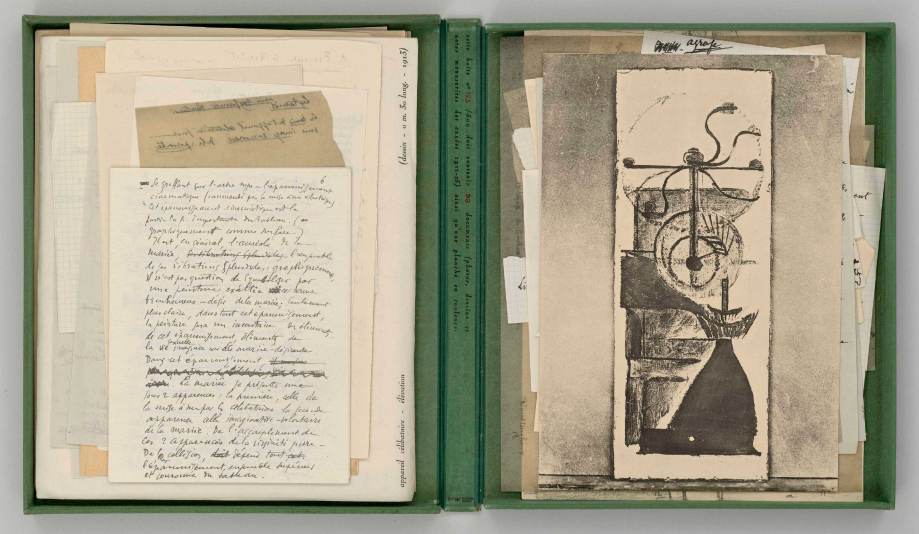 6
— Se greffant sur l'arbre type - l'épanouissement
cinématique (commandé par la mise à nu électrique)
Cet épanouissement cinématique est la
partie la + importante du tableau. (
graphiquement comme surface)
Il est, en général, l'auréole de la
mariée l'ensemble
de ses vibrations splendides: graphiquement,
il n'est pas question de symboliser par
une peinture exaltée terme
bienheureux - désir de la mariée; seulement
plus claire, dans tout cet épanouissement,
la peinture sera un inventaire des éléments
de cet épanouissement, éléments de
la vie sexuelle imaginée par elle mariée-désirante.
Dans cet épanouissement
La mariée se présente nue
sous 2 apparences: la première, celle de
la mise à nu par les célibataires, la seconde
apparence celle imaginative-volontaire
de la mariée. De l'accouplement de
ces 2 apparences de la virginité pure -
De la collision, dépend tout
l'épanouissement, ensemble supérieur
et couronne du tableau.
appareil célibataire - élévation
(dessin - 0 m. 30 long. - 1913)
cette boîte n° /300 doit contenir documents (photos, dessins et
notes manuscrites des années 1911-15) ainsi qu'une planche en couleurs.
agrafe